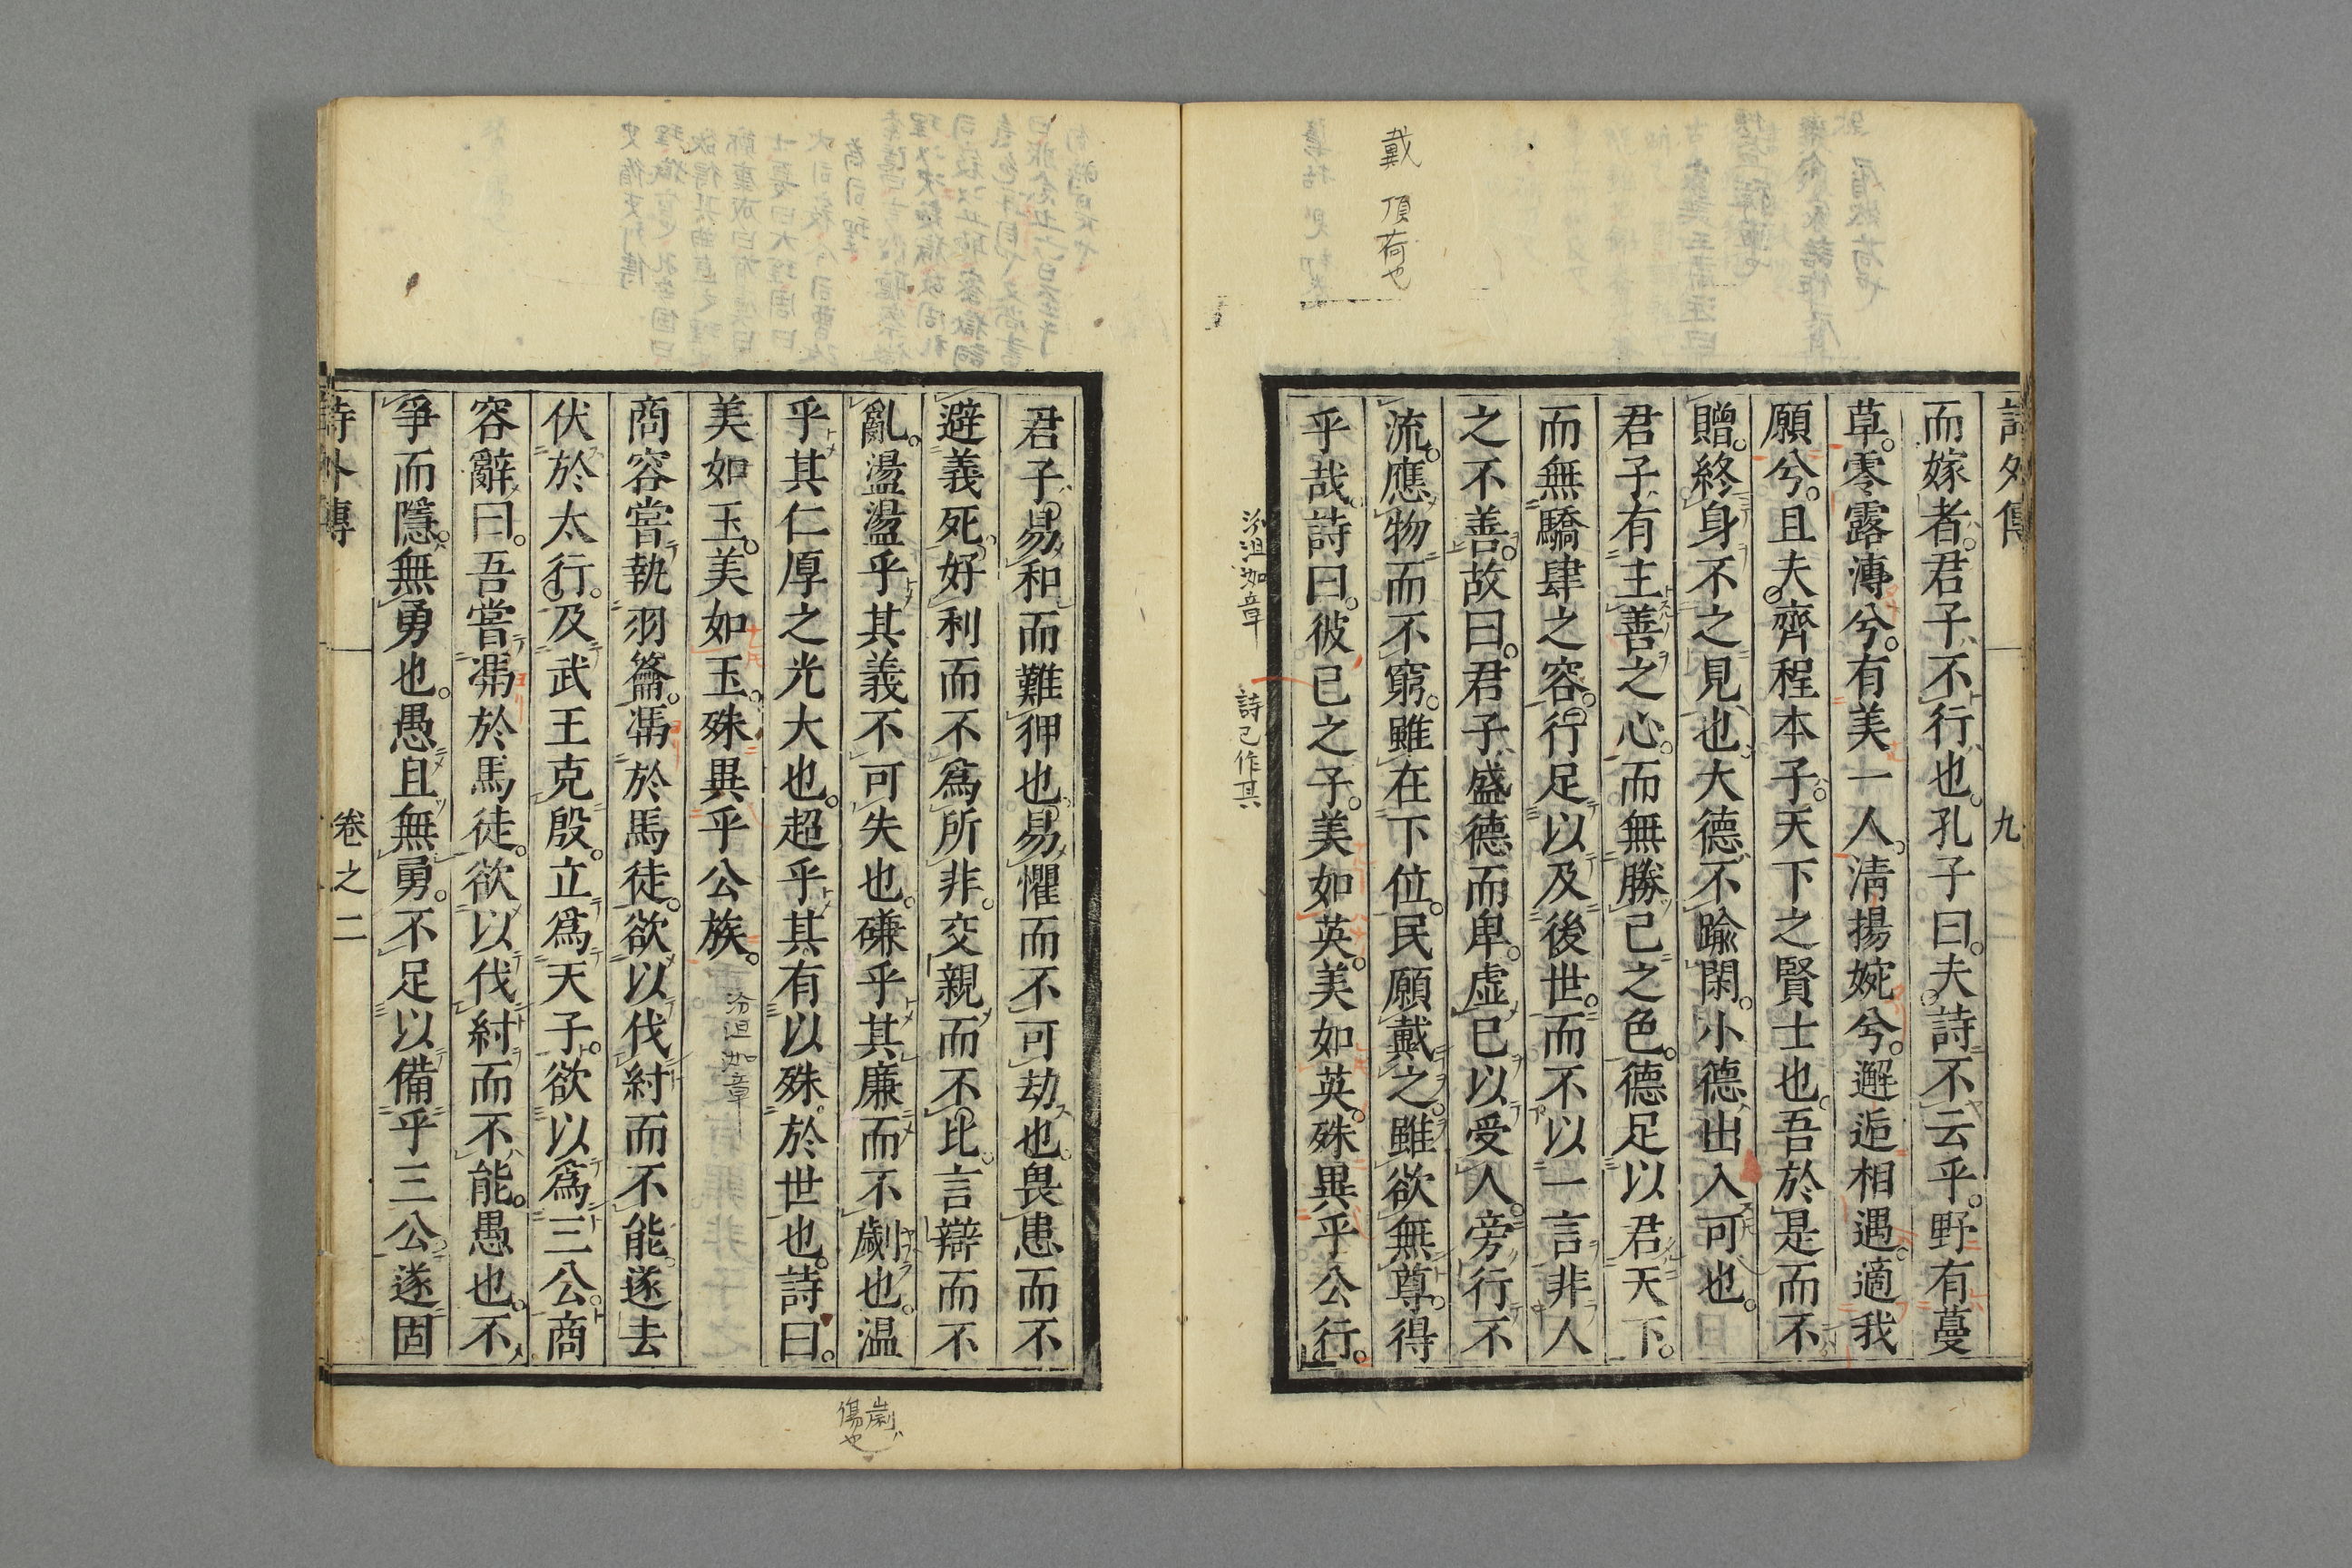 詩外傳
九
而嫁者。君子不行也。孔子曰。夫詩不云乎。野有蔓
草。零露漙兮。有美一人。淸揚婉兮。邂逅相遇。適我
願兮。且夫齊程本子。天下之賢士也。吾於是而不
贈。終身不之見也。大德不踰閑。小德出入可也。
君子有主善之心。而無勝己之色。德足以君天下。
而無驕肆之容。行足以及後世。而不以一言非人
之不善。故曰。君子盛德而卑。虛已以受人。旁行不
流。應物而不窮。雖在下位。民願戴之。雖欲無尊。得
乎哉。詩曰。彼已之子。美如英。美如英。殊異乎公行。
戴 頂荷也
汾沮洳章
詩己作其
君子易和而難狎也。易懼而不可劫也。畏患而不
避義死。好利而不爲所非。交親而不比。言辯而不
亂。盪盪乎其義不可失也。磏乎其廉而不劌也。温
乎其仁厚之光大也。超乎其有以殊於世也。詩曰。
美如玉。美如玉。殊異乎公族。
汾沮洳章
商容嘗執羽籥。馮於馬徒。欲以伐紂而不能。遂去
伏於太行。及武王克殷。立爲天子。欲以爲三公。商
容辭曰。吾嘗馮於馬徒。欲以伐紂而不能。愚也。不
爭而隱。無勇也。愚且無勇。不足以備乎三公。遂固
劌ハ
傷也
詩外傳
卷之二